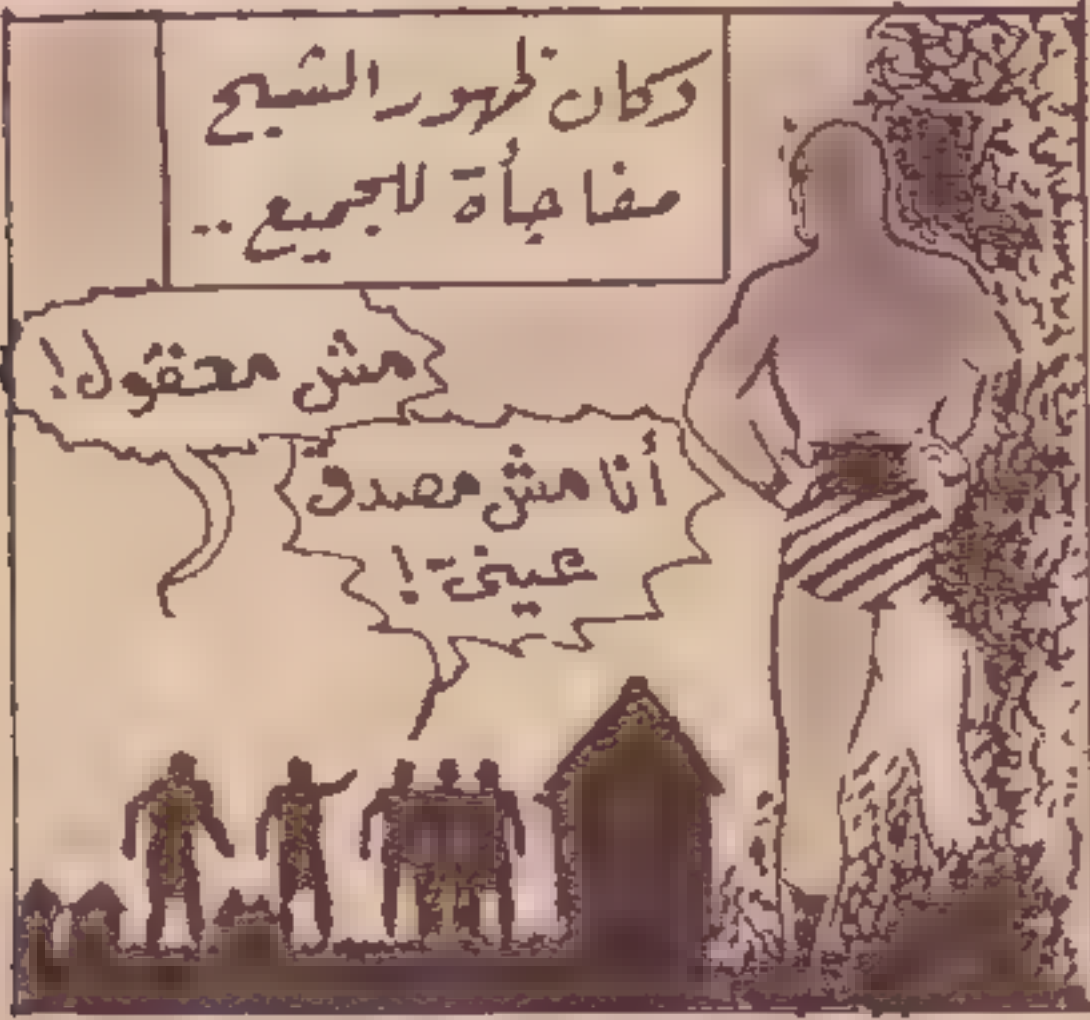 وكان ظهور الشبح
مفاجأة للجميع..
مش معقول!
أنا مش مصدق
عيني!